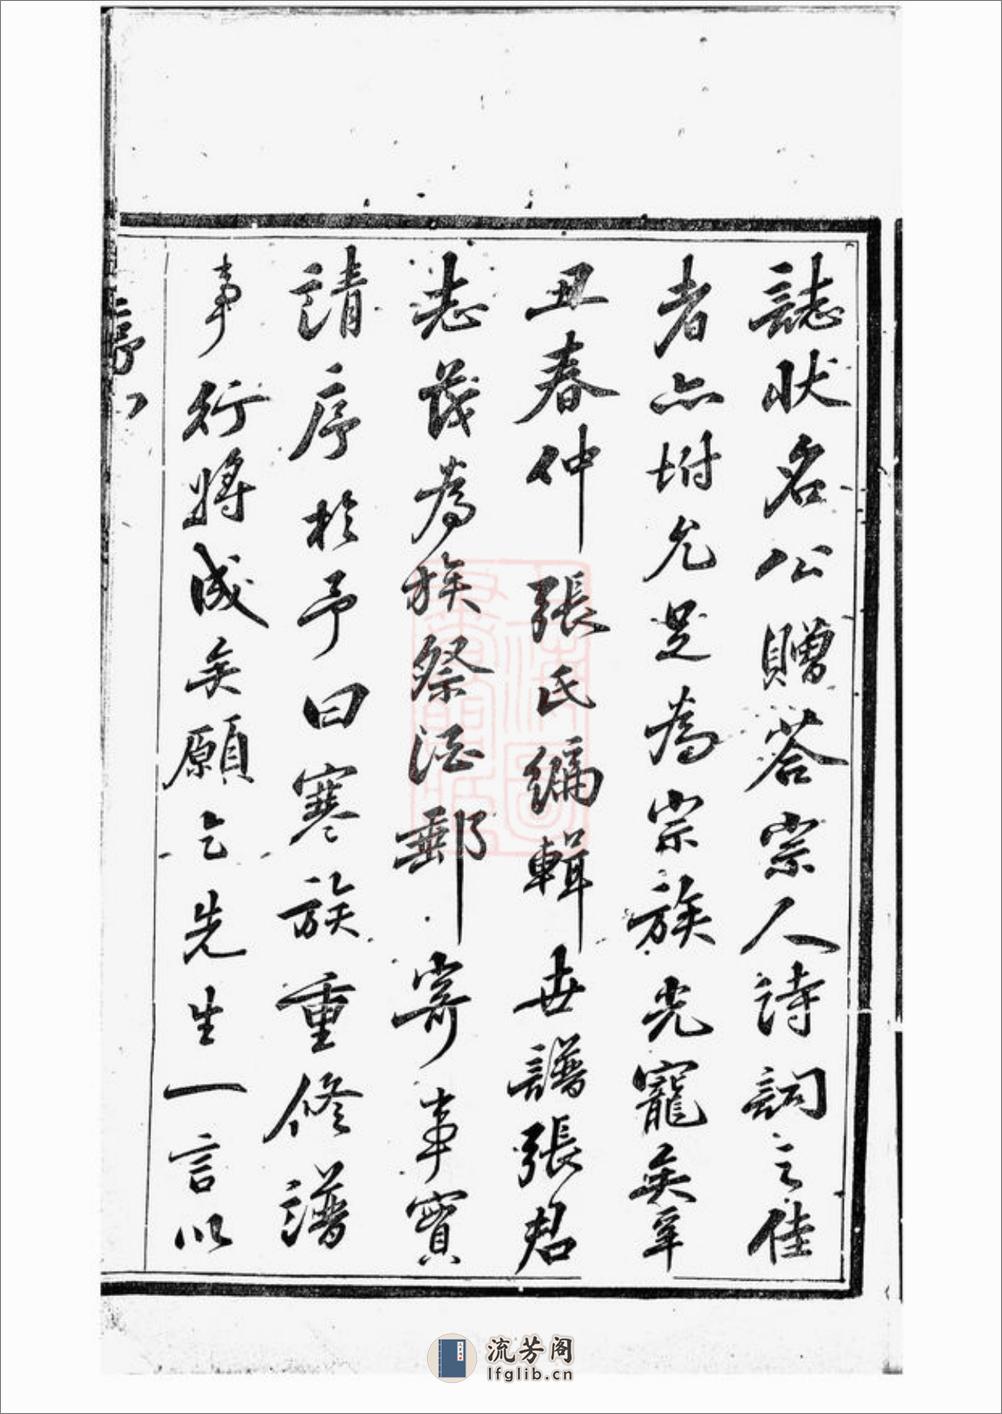 誌狀名公贈答宗人詩詞之佳
者亦坿尤足為宗族光寵矣辛
丑春仲張氏編輯世譜張君
志茂為族祭酒郵寄事實
請序於予曰寒族重修譜
事行將成矣願乞先生一言以
序
流芳阁
lfglib.cn